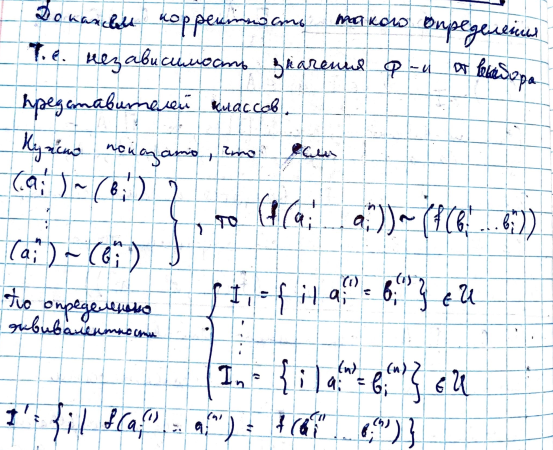 Докажем корректность такого определения
т.е. независимость значения ф-и от выбора
представителей классов.
Нужно показать, что если
(a_i^1) ~ (b_i^1)
⋮
(a_i^n) ~ (b_i^n) }, то (f(a_i^1 ... a_i^n)) ~ (f(b_i^1 ... b_i^n))
По определению эквивалентности
{ I_1 = { i | a_i^(1) = b_i^(1) } ∈ U
⋮
I_n = { i | a_i^(n) = b_i^(n) } ∈ U
I' = { i | f(a_i^(1) ... a_i^(n)) = f(b_i^(1) ... b_i^(n)) }